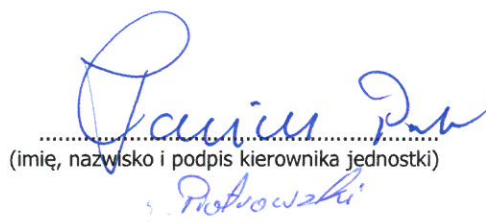 (imię, nazwisko i podpis kierownika jednostki)
Piotrowski